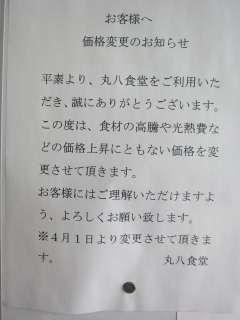 お客様へ
価格変更のお知らせ
平素より、丸八食堂をご利用いただ
だき、誠にありがとうございます。
この度は、食材の高騰や光熱費な
どの価格上昇にともない価格を変
更させて頂きます。
お客様にはご理解いただけますよ
う、よろしくお願い致します。
※４月１日より変更させて頂きま
す。 丸八食堂